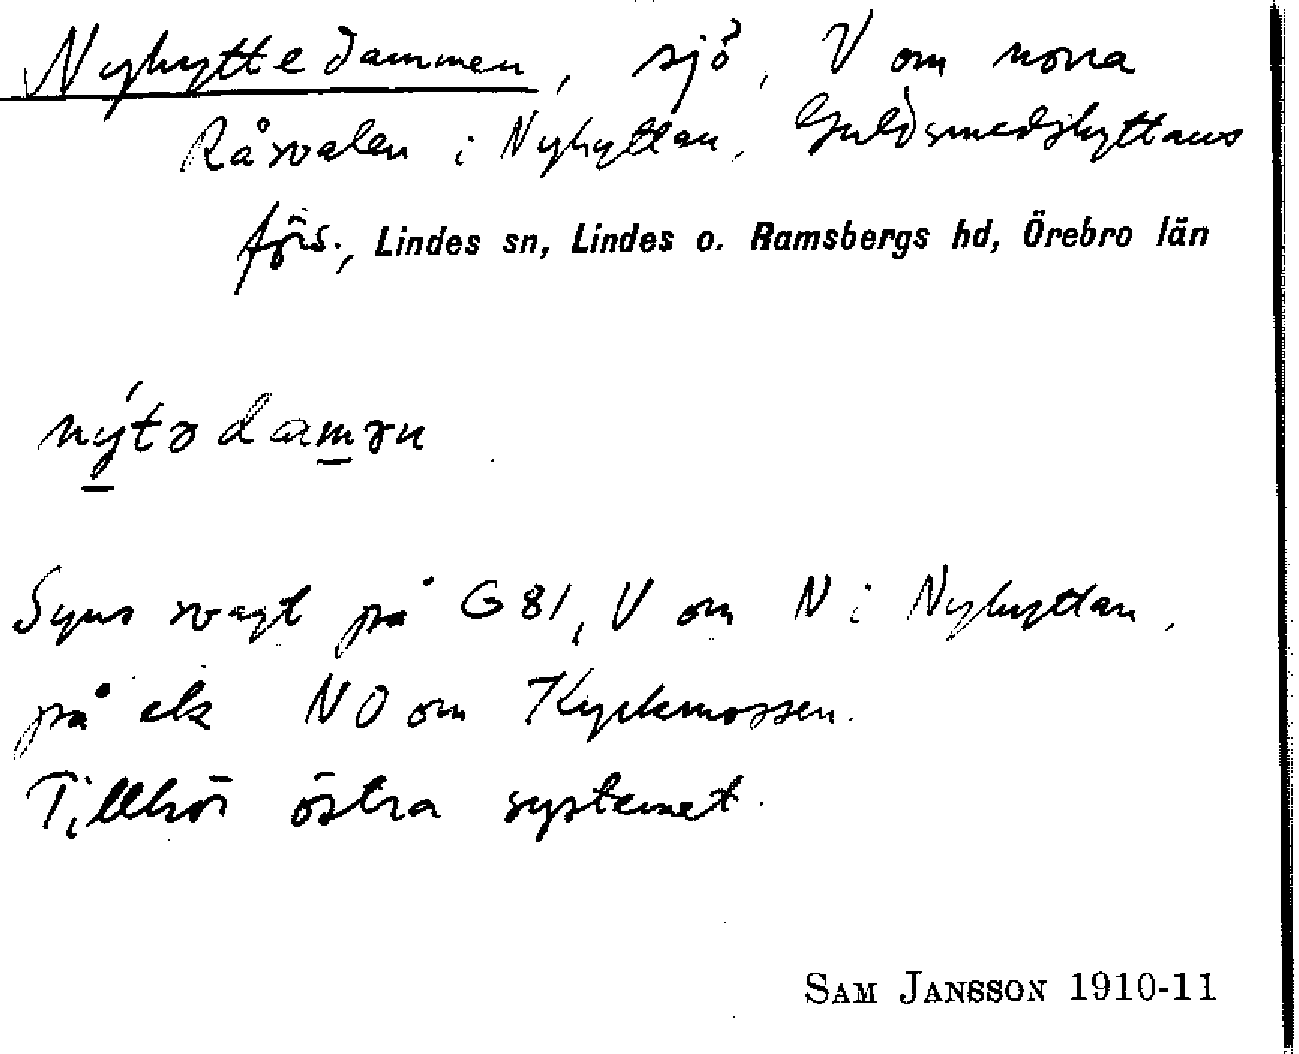 Nyhyttedammen, sjö, V om norra
Råsvalen i Nyhyttan, Guldsmedshyttans
förs., Lindes sn, Lindes o. Ramsbergs hd, Örebro län
nýtədamən
Syns svagt på G 81, V om N i Nyhyttan,
på ek NO om Kyrkmossen.
Tillhör östra systemet.
SAM JANSSON 1910-11